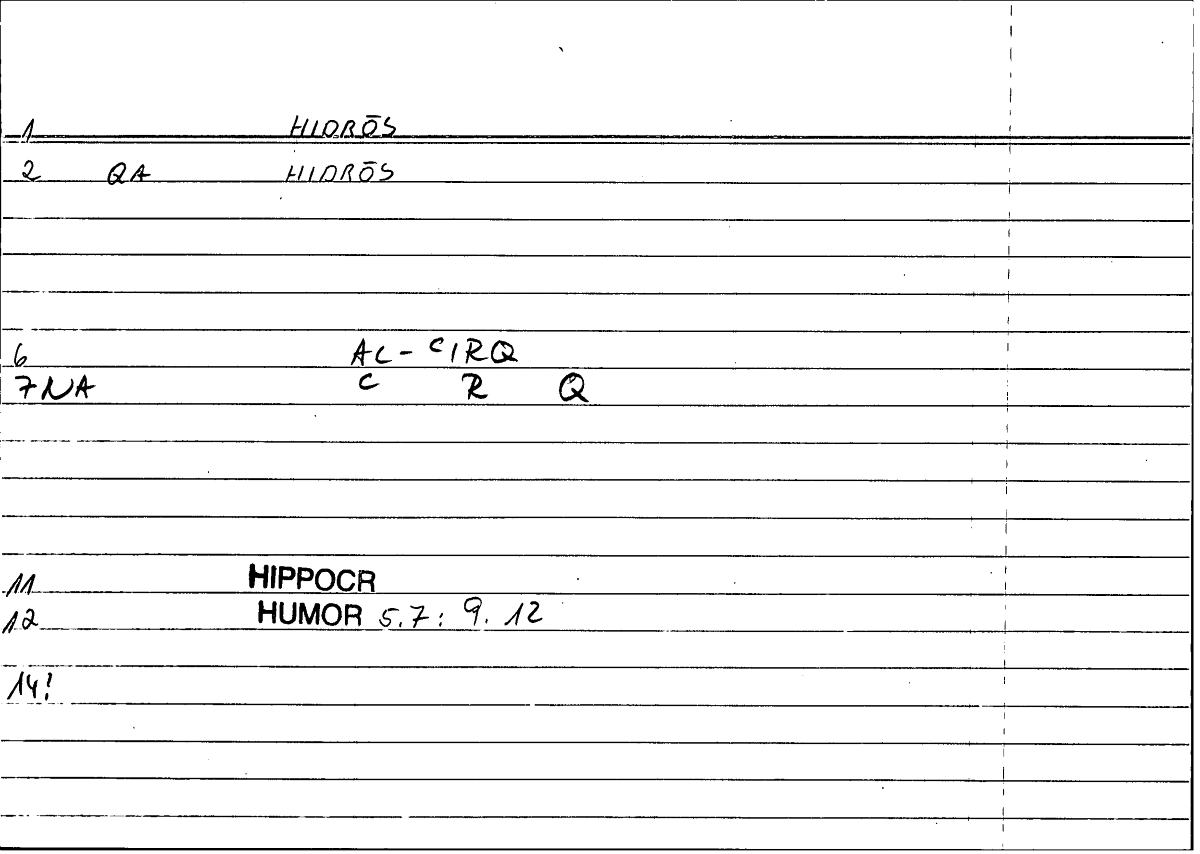 1 HIDRŌS
2 QA HIDRŌS
6 AC - CIRQ
7 NA C R Q
11 HIPPOCR
12 HUMOR 5.7: 9. 12
14!